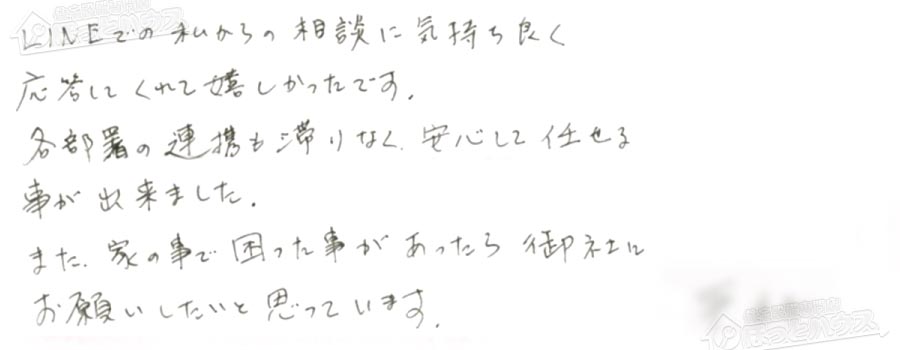 LINEでの私からの相談に気持ち良く
応答してくれて嬉しかったです.
各部署の連携も滞りなく、安心して任せる
事が出来ました.
また、家の事で困った事があったら御社に
お願いしたいと思っています.